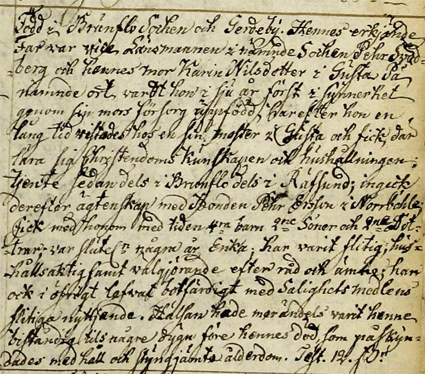 Född i Brunflo Socken och Gerdeby. Hennes erkände
Far var Länsmannen i nämnde Socken Pehr
berg och hennes mor Karin Nilsdotter i Gusta på
nämnde ort, vardt hon i sju år först i synnerhet
genom sin mors försorg uppfödd, hvarefter hon en
lang tid vistades hos en sin moster i Gusta och fick där
lära sig Christendoms kunskapen och hushållningen;
tjente sedan dels i Brunflo dels i Rafsund; ingick
derefter ägtenskap med Bonden Pehr i Norrbohle;
fick med honom med tiden 4ra barn 2ne Söner och 2ne Döt-
trar; var slutel. några år Enka; har varit flitig; hus-
hållsaktig samt välgjörande efter råd och ämne; han
ock i öfrigt lefvat botfärdigt med Salighets medlens
flitiga nyttjande. Hälsan hade merändels varit henne
biständig tils någre dygn före hennes död, som påskyn-
dades med håll och styng jämte ålderdom. Test. 12.